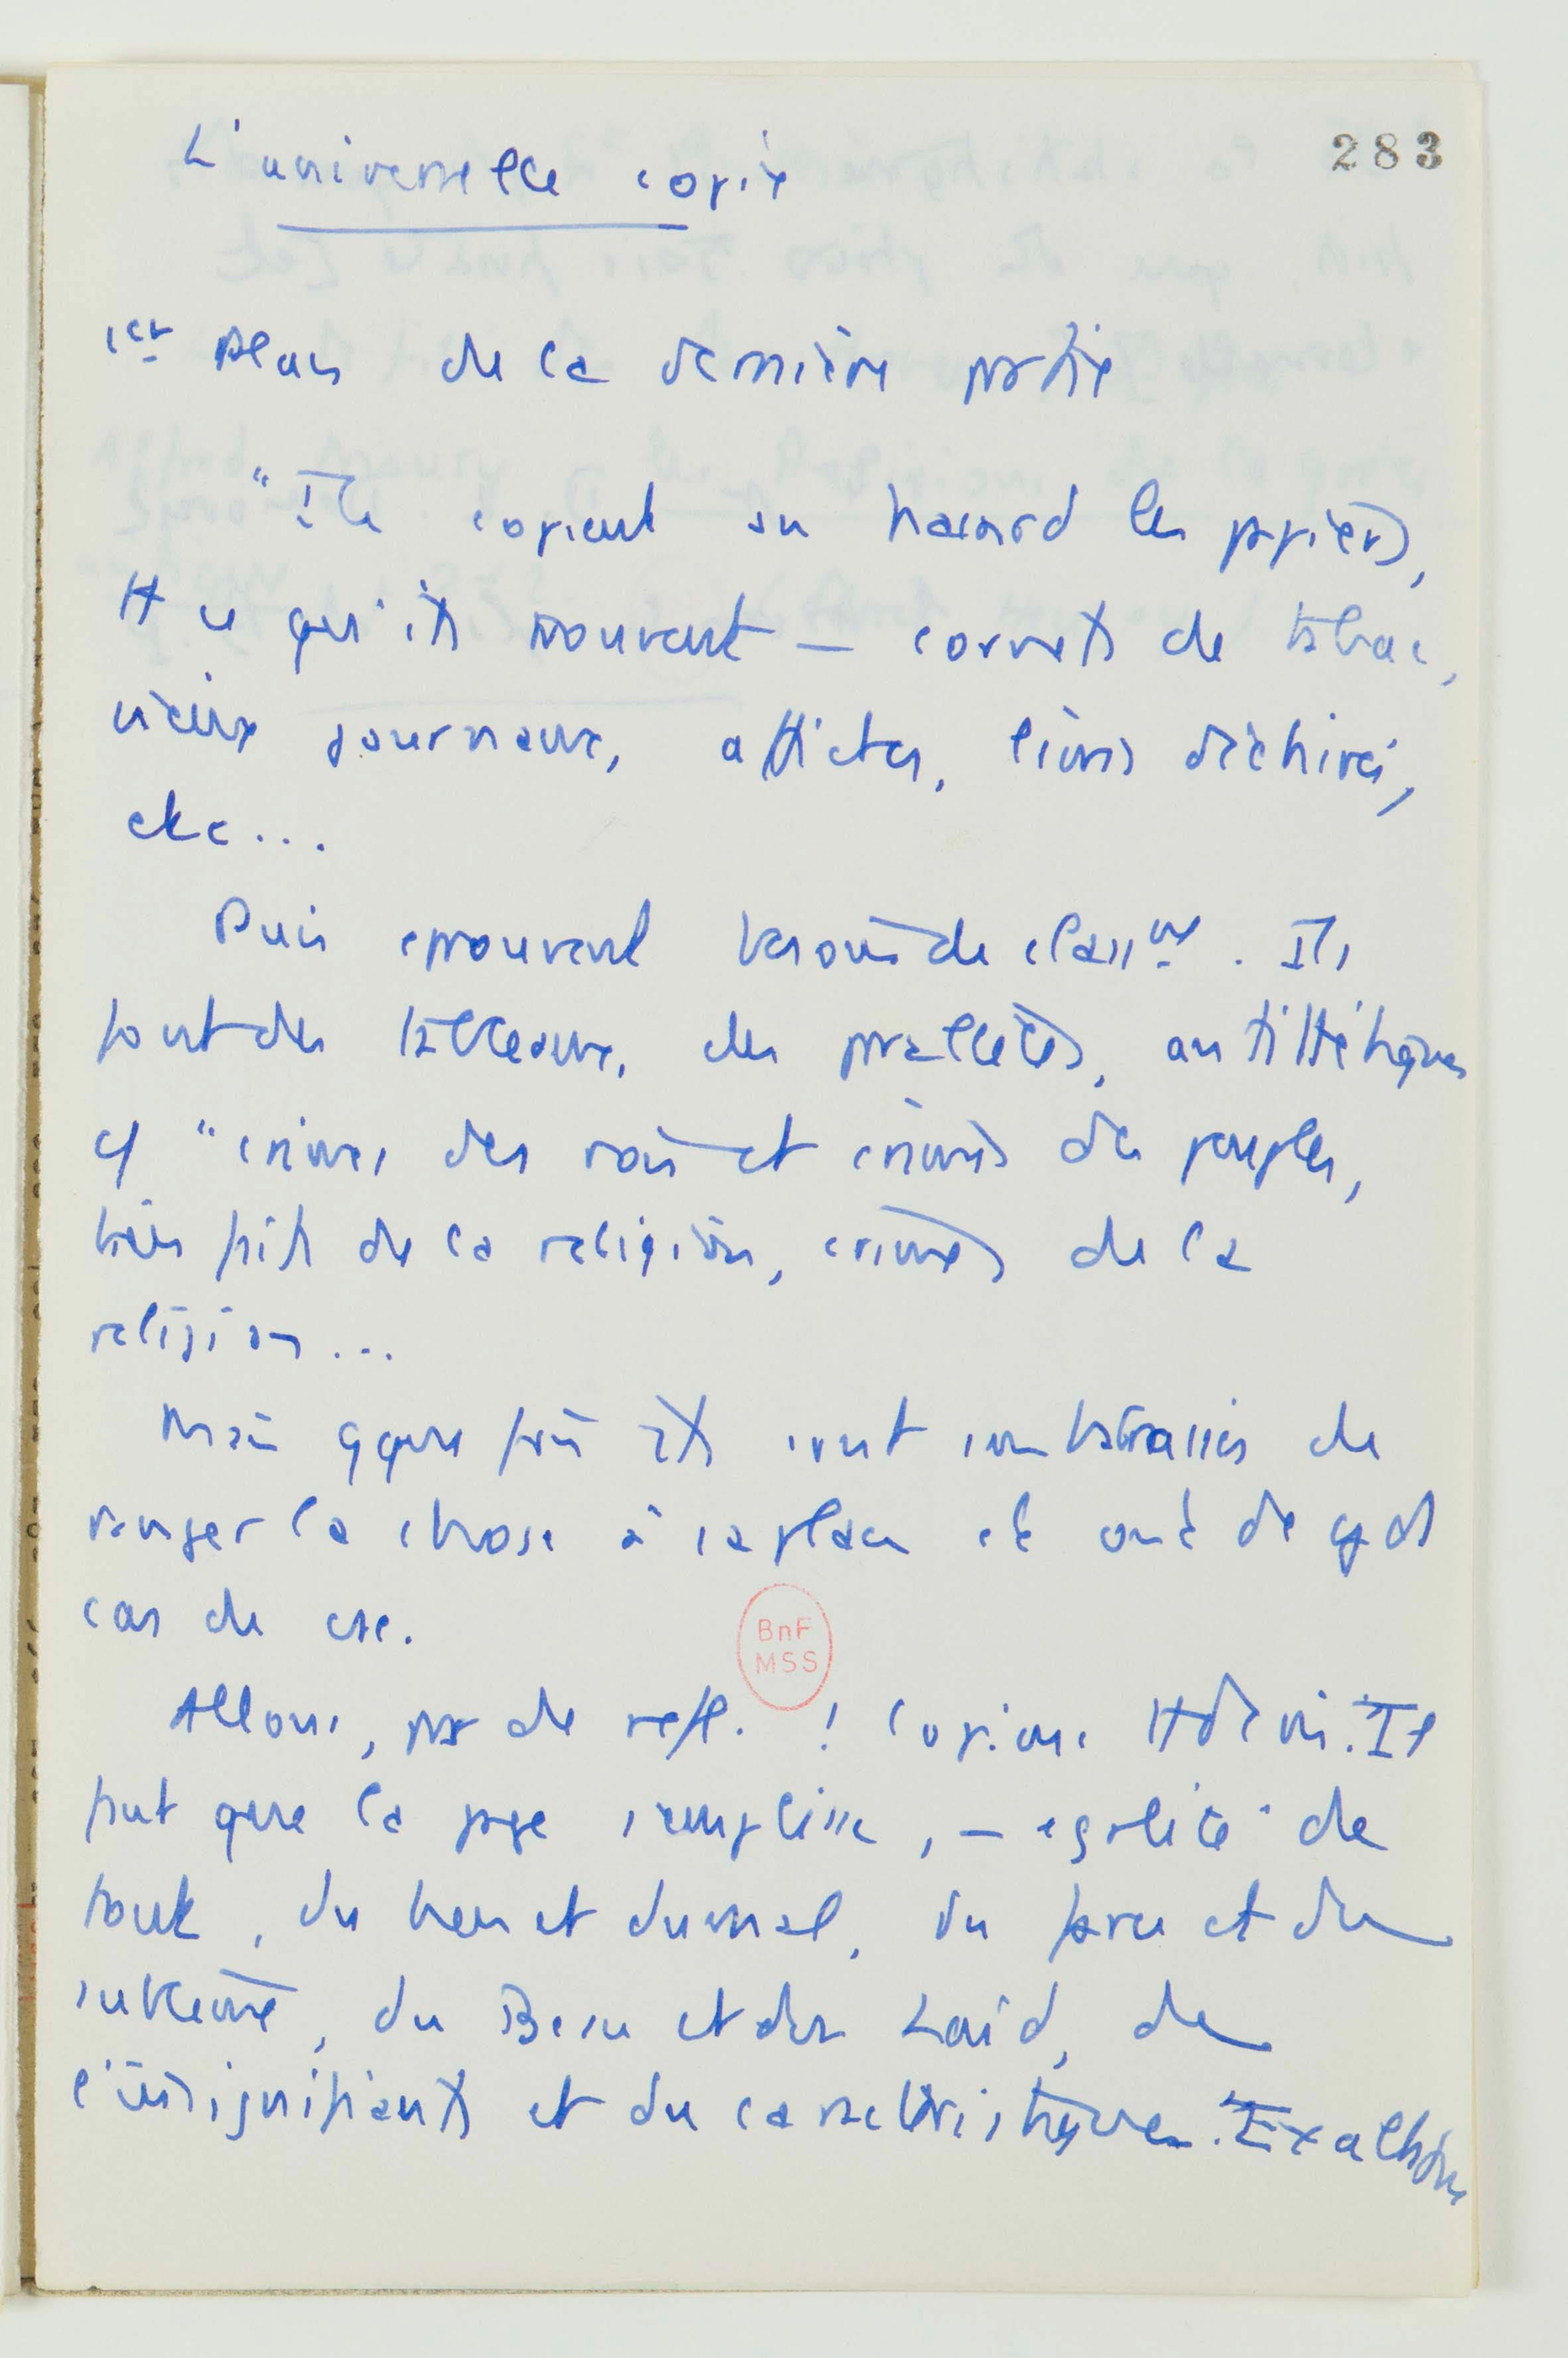 283
L'universelle copie
1er plan de la dernière partie
"Ils copient au hasard les papiers,
tt ce qu'ils trouvent — cornets de tabac,
vieux journaux, affiches, livres déchirés,
etc...
Puis éprouvent besoin de classnt. Ils
font des tableaux, des parallèles, antithétiques
cf "crimes des rois et crimes des peuples,
bienfaits de la religion, crimes de la
religion...
Mais qques fois ils sont embarrassés de
ranger la chose à sa place et ont de gds
cas de csc.
Allons, pas de réfl. ! Copions tt de m. Il
faut que la page s'emplisse, — égalité de
tout, du bien et du mal, du farce et du
sublime, du Beau et du Laid, de
l'insignifiant et du caractéristique. Exaltation
BnF
MSS